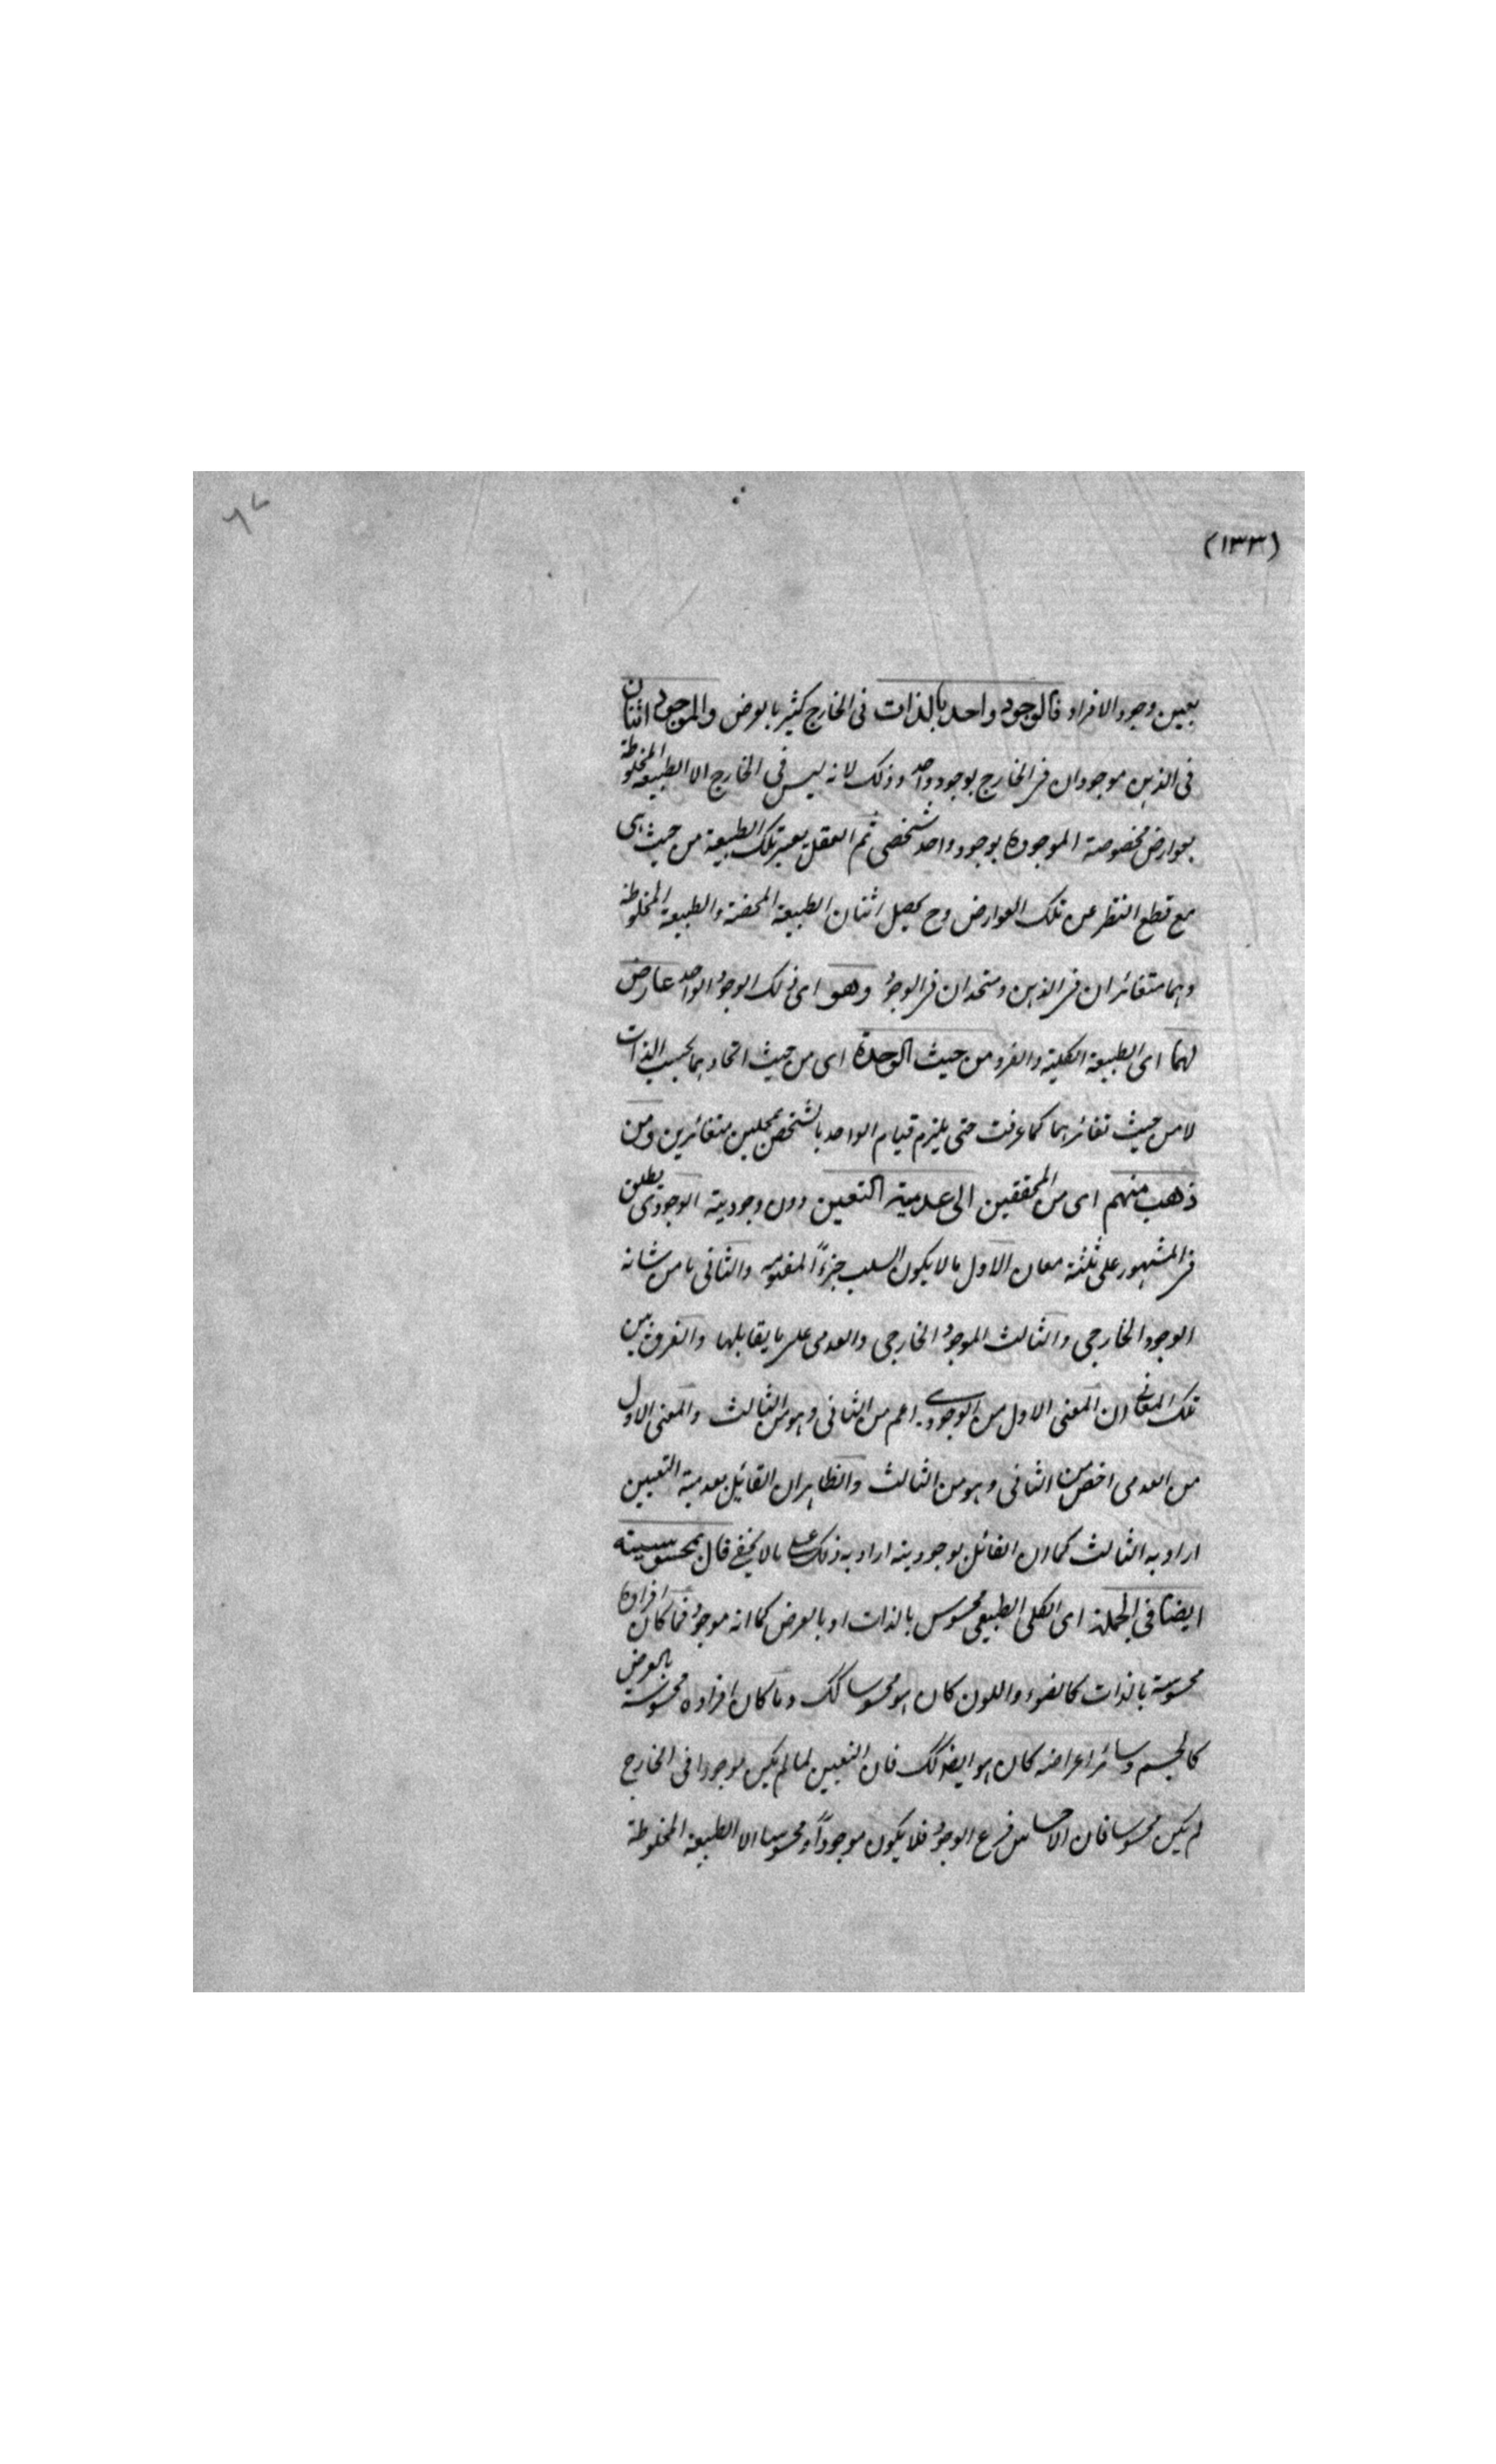 (١٣٣)
بعين وجود الافراد فالوجود واحد بالذات فى الخارج كثير بالعرض والموجود اثنان
فى الذهن موجودان فى الخارج بوجود واحد وذلك لانه ليس فى الخارج الا الطبيعة المخلوطة
بعوارض مخصوصة الموجودة بوجود واحد شخصى ثم العقل يعتبر تلك الطبيعة من حيث هى
مع قطع النظر عن تلك العوارض وح يحصل اثنان الطبيعة المحضة والطبيعة المخلوطة
وهما متغائران فى الذهن ومتحدان فى الوجود وهو اى ذلك الوجود الواحد عارض
لهما اى الطبيعة الكلية والفرد من حيث الوحدة اى من حيث اتحادهما بحسب الذات
لا من حيث تغائرهما كما عرفت حتى يلزم قيام الواحد بالشخص بمحلين متغائرين ومن
ذهب منهم اى من المحققين الى عدمية التعين دون وجودية الوجودى يطلق
فى المشهور على ثلثة معان الاول ما لا يكون السلب جزءًا لمفهومه والثانى ما من شانه
الوجود الخارجى والثالث الموجود الخارجى والعدمى على ما يقابلها والفرق بين
تلك المعانى ان المعنى الاول من الوجودى اعم من الثانى وهو من الثالث والمعنى الاول
من العدمى اخص من الثانى وهو من الثالث والظاهر ان القائل بعدمية التعين
اراد به الثالث كما ان القائل بوجوديته اراد به ذلك على ما لا يخفى قال بمحسوسيته
ايضا فى الجملة اى الكلى الطبيعى محسوس بالذات او بالعرض كما انه موجود فما كان افراده
محسوسة بالذات كالضوء واللون كان هو محسوسا كك وما كان افراده محسوسة بالعرض
كالجسم وسائر اعراضه كان هو ايضا كك فان التعين لما لم يكن موجودا فى الخارج
لم يكن محسوسا فان الاحساس فرع الوجود فلا يكون موجودًا ومحسوسا الا الطبيعة المخلوطة